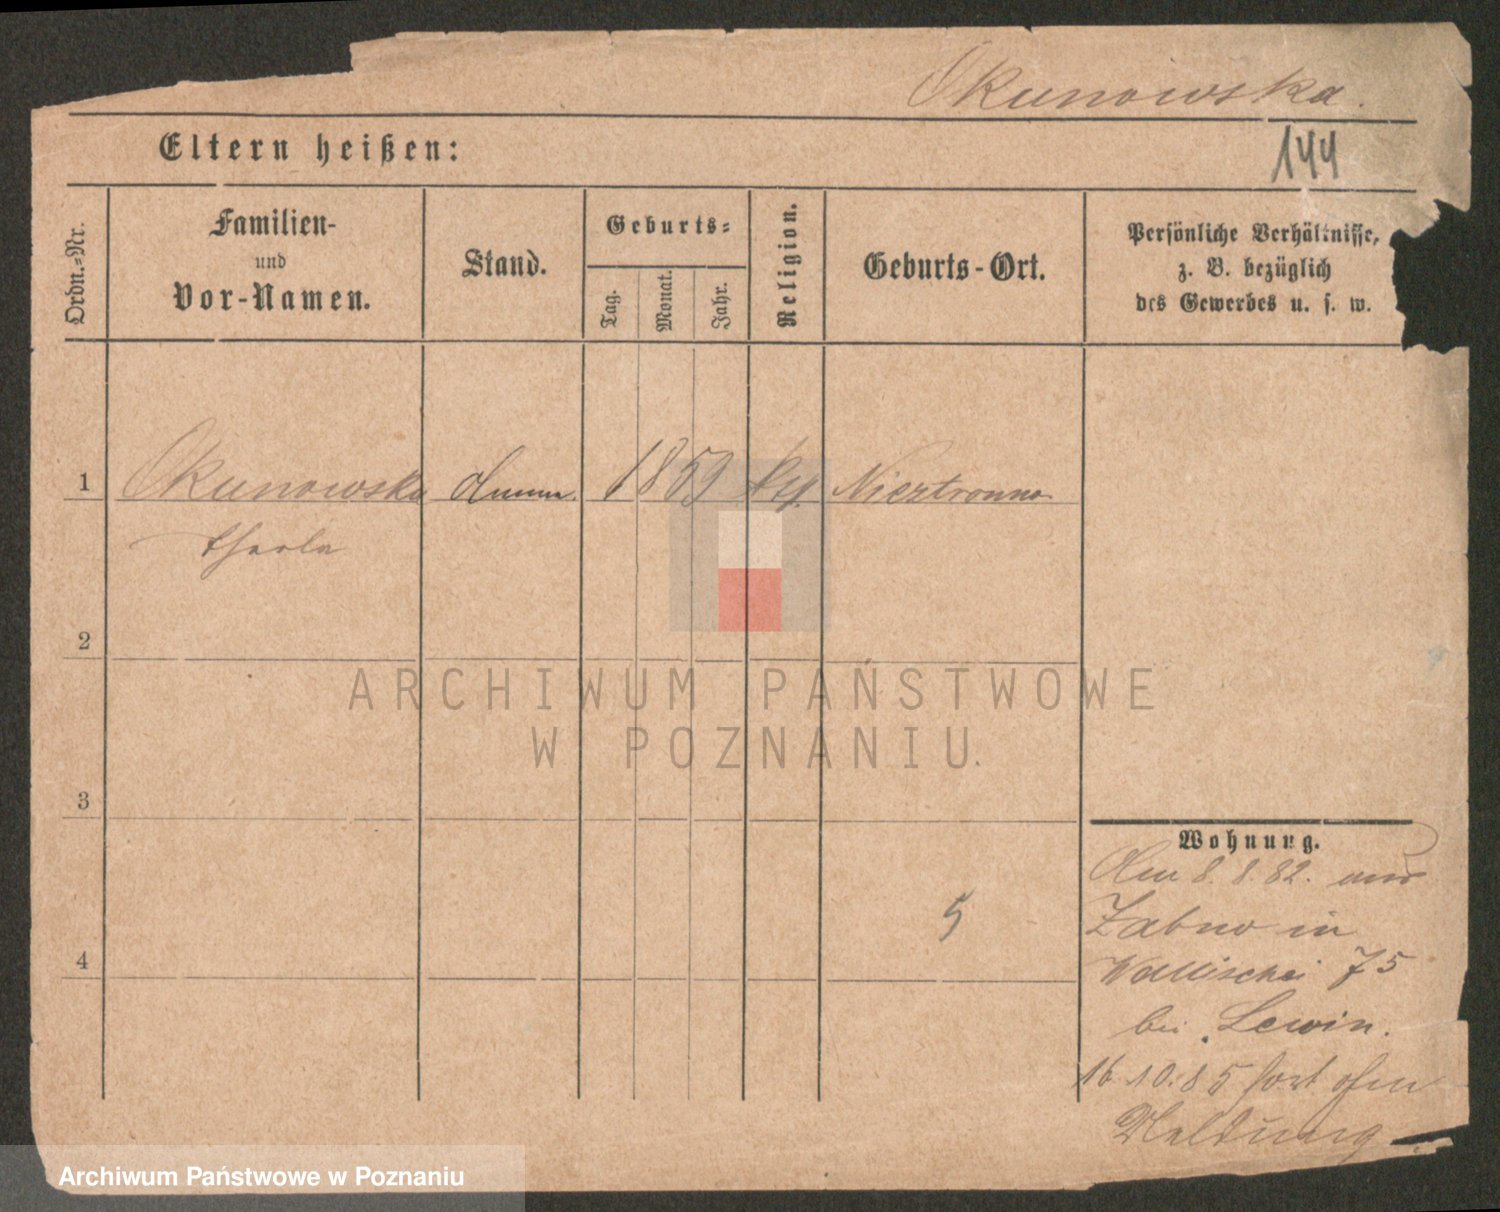 Okunowska.
144
Eltern heißen:
Ordn.=Nr.
Familien-
und
Vor-Namen.
Stand.
Geburts=
Tag.
Monat.
Jahr.
Religion.
Geburts-Ort.
Persönliche Verhältnisse,
z. B. bezüglich
des Gewerbes u. s. w.
1
Okunowska
1859
2
ARCHIWUM PAŃSTWOWE
W POZNANIU
3
Wohnung.
8. 8. 82. aus
5
Zabno in
4
Wallischei 75
bei Lewin.
16.10.85 fort ohne
Meldung
Archiwum Państwowe w Poznaniu